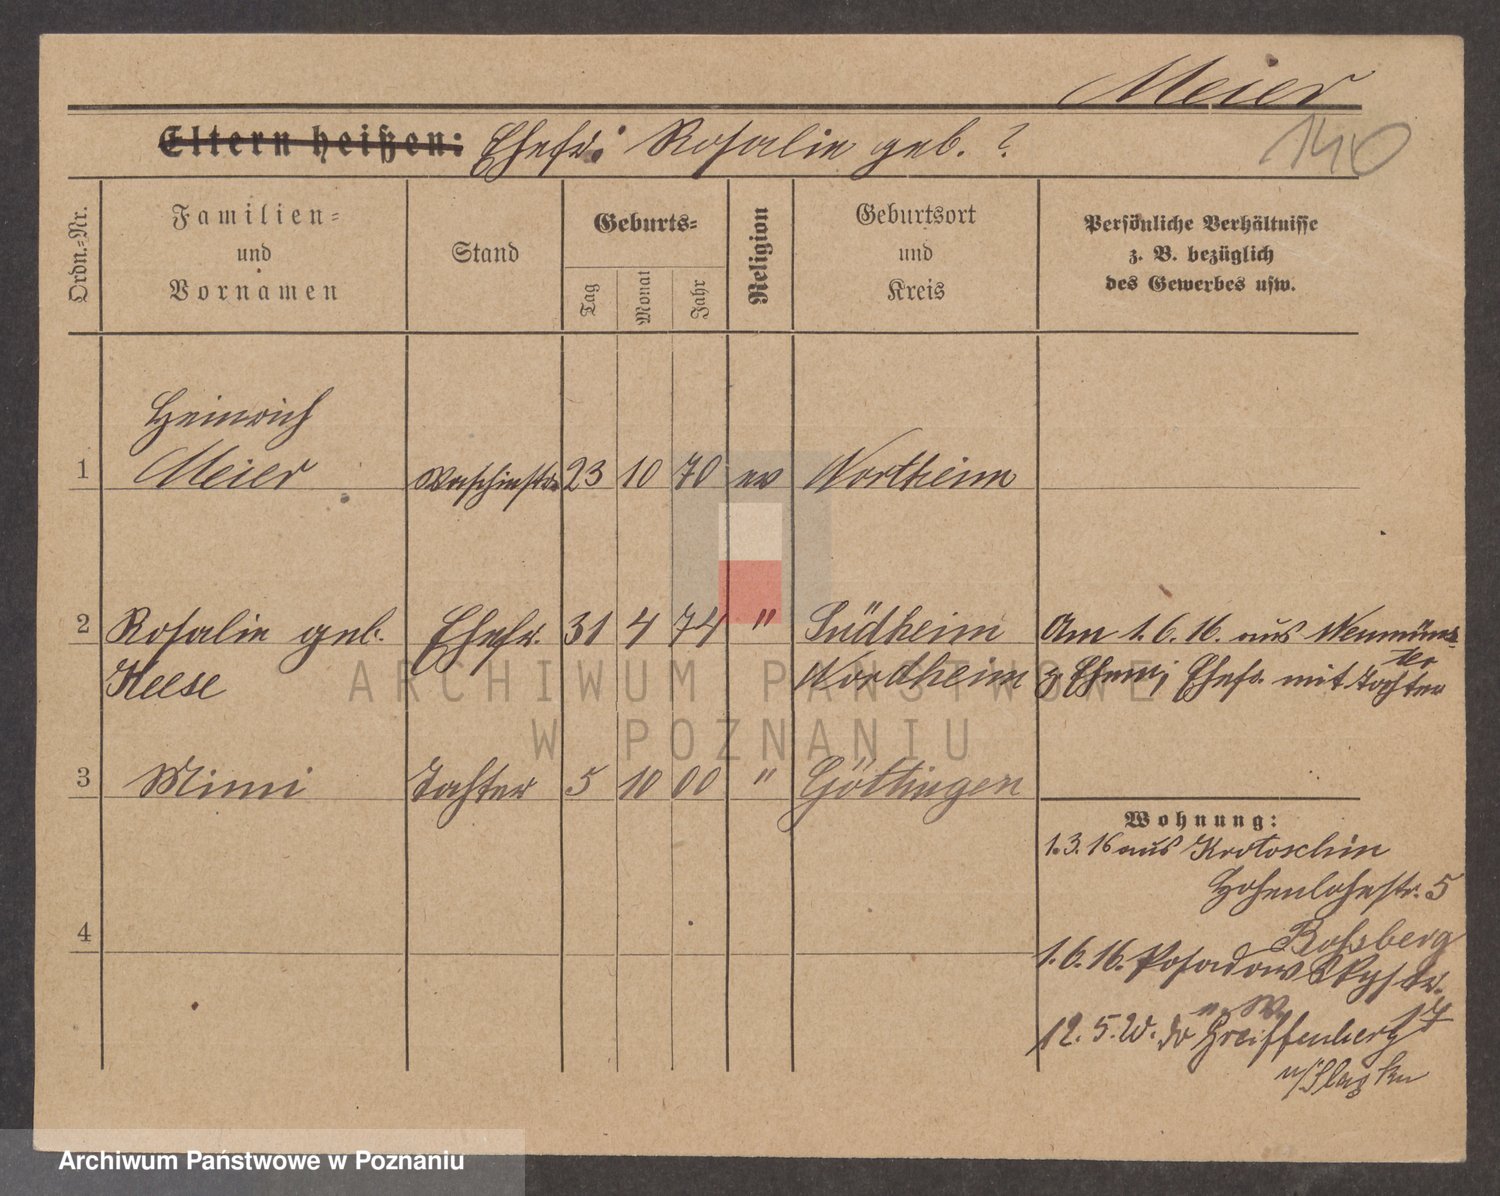 Meier
140
Eltern heißen: Ehefr: Rosalie geb. ?
Ordn.=Nr.
Familien=
und
Vornamen
Stand
Geburts=
Tag
Monat
Jahr
Religion
Geburtsort
und
Kreis
Persönliche Verhältnisse
z. B. bezüglich
des Gewerbes usw.
Heinrich
1 Meier 23 10 70 ev Northeim
2 Rosalie geb. Ehefr. 31 4 74 " Südheim Am 1.6.16. aus Neumüns-
ter
Heese Nordheim z. Ehem; Ehefr. mit Tochter
3 Mimi Tochter 5 10 00 " Göttingen
Wohnung:
1.3.16 aus Krotoschin
Hohenlohestr. 5
Rossberg
4
1.6.16. Posadowskystr.
17
12.5.20. Greiffenberg
ARCHIWUM PAŃSTWOWE
W POZNANIU
Archiwum Państwowe w Poznaniu